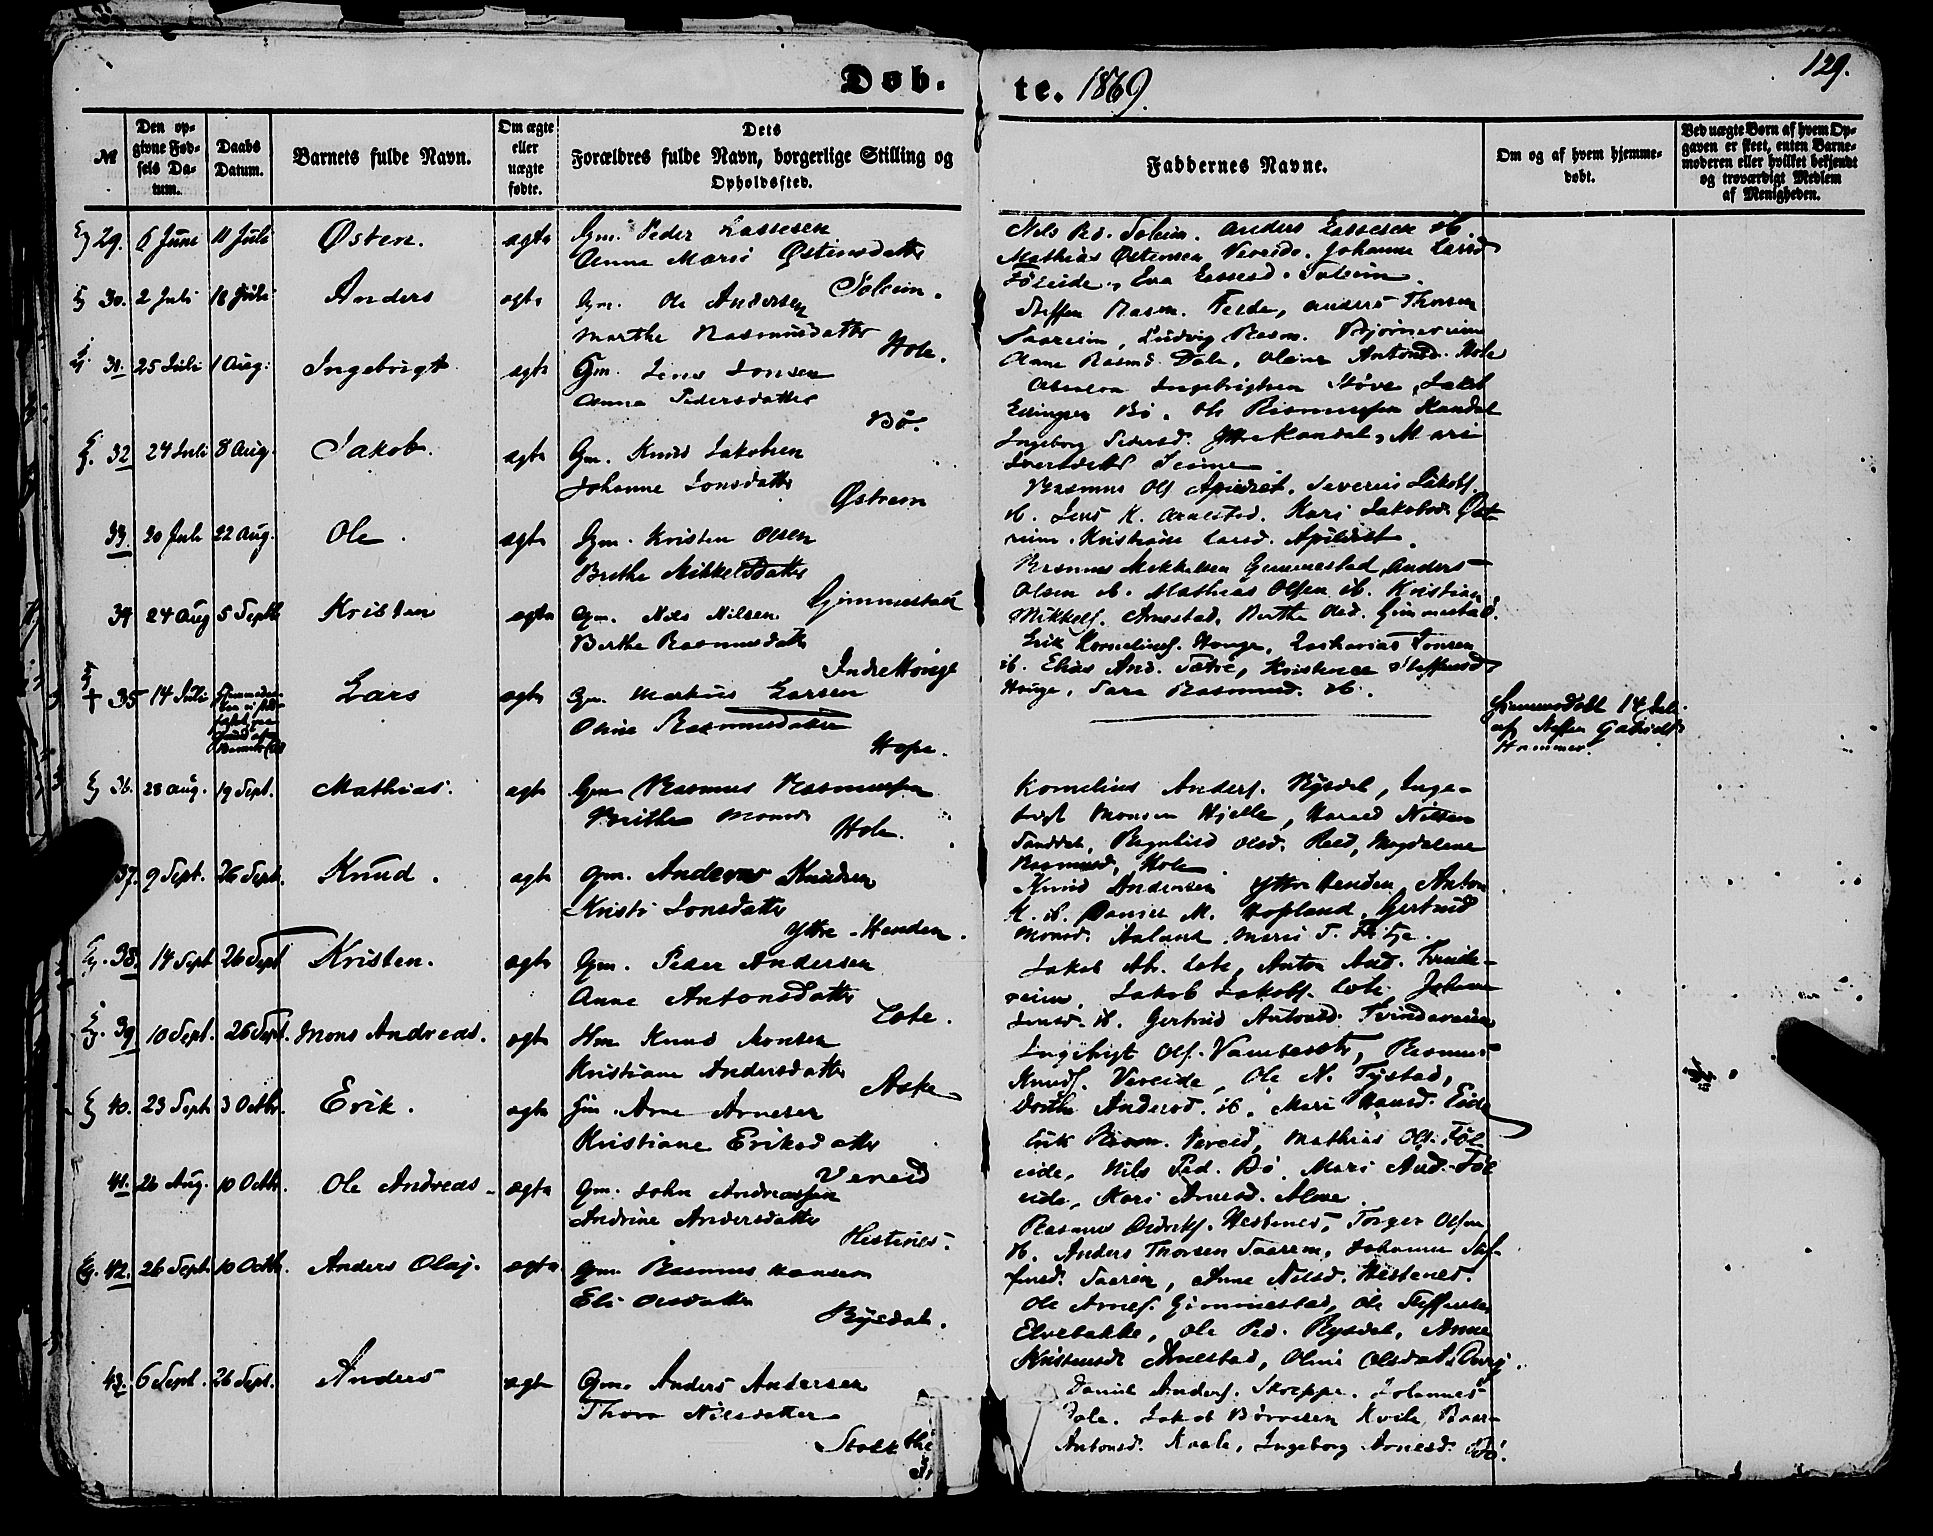 129.
Døb. te. 1869.
№
Den opgivne Fødsels Datum.
Daabs Datum.
Barnets fulde Navn.
Om ægte eller uægte fødte.
Dets Forældres fulde Navn, borgerlige Stilling og Opholdssted.
Faddernes Navne.
Om og af hvem hjemmedøbt.
Ved uægte Børn af hvem Opgaven er skeet, enten Barnemoderen eller hvilket bekjendt og troværdigt Medlem af Menigheden.
29. 6 Juni 11 Juli Østen. ægte Gm. Peder Lassesen
Anne Marie Østensdatter
Soleim.
Nils Ped. Soleim. Anders Lassesen ib.
Mathias Østensen Vereide. Johanne Lassd
Føleide, Eva Lassesd. Soleim.
30. 2 Juli 18 Juli Anders ægte Gm. Ole Andersen
Marthe Rasmusdatter
Hole.
Steffen Rasm. Feede, Anders Thorsen
Saareim, Ludvig Rasm. Bjørnereim
Anne Rasmd. Dale, Oline Antonsd. Hole
31. 25 Juli 1 Aug. Ingebrigt ægte Gm. Jens Jonsen
Anna Pedersdatter
Bø.
Ingebrigtsen Støve, Jakob
Ellingsen Bø, Ole Rasmussen Kandal
Ingeborg Pedersd. Ytre Kandal, Mari
32 24 Juli 8 Aug. Jakob. ægte Gm. Knud Jakobsen
Johanne Jonsdatter
Østrem
Rasmus Ols Apildset. Severin Jakobs.
ib. Jens K. Aralsted. Kari Jakobsd. Øst-
reim. Kristiane Larsd. Apildset.
33. 30 Juli 22 Aug. Ole. ægte Gm. Kristen Olsen
Berthe Mikkelsdatter
Gimmestad
Rasmus Mikkelsen Gimmestad, Anders
Olsen ib. Mathias Olsen ib. Kristian
Mikkels. Arnestad, Berthe Olsd. Gimmestad.
34 24 Aug 5 Septb Kristen ægte Gm. Nils Nilsen
Berthe Rasmusdatter
Indre Houge
Erik Korneliuss. Houge, Zacharias Jonsen
ib. Elias And. Sætre, Kristense Steffensd
Houge, Sara Rasmusd. ib.
+ 35 14 Juli Lars ægte Gm. Markus Larsen
Oline Rasmusdatter
Hope.
Hjemmedøbt 14 Juli
af Steffen Gabriels.
Hammer.
36. 28 Aug. 19 Sept. Mathias. ægte Gm. Rasmus Rasmussen
Berithe Monsd
Hole.
Kornelius Anders. Rysdal, Inge-
brigt Monsen Hjelle, Harald Nilsen
Sanddal, Ragnhild Olsd. Reed, Magdalene
Rasmusd, Hole
37. 9 Sept. 26 Sept. Knud. ægte Gm. Anders Knudsen
Kristi Jonsdatter
Ytre-Henden.
Knud Andersen Ytre Henden, Anton
K. ib. Daniel M. Hopland, Gertrud
Monsd. Aaland, Marie T. Fitje.
38. 14 Sept 26 Sept Kristen. ægte Gm. Peder Andersen
Anne Antonsdatter
Lote.
Jakob Ab. Lote, Anton And. Tvinde-
reim. Jakob Jakobs. Lote. Johanne
Jensd. ib. Gertrud Antonsd. Tvindereim
39. 10 Sept. 26 Sept. Mons Andreas. ægte Hm. Knud Monsen
Kristiane Andersdatter
Aske
Ingebrigt Ols. Vambeseth, Rasmus
Knuds. Vereide, Ole N. Tystad,
Dorthe Andersd. ib. Mari Hansd. Eide
40. 23 Sept. 3 Octbr. Erik. ægte Gm. Arne Arnesen
Kristiane Eriksdatter
Vereid
Erik Rasm. Vereid, Mathias Ols. Føl-
eide, Nils Ped. Bø. Mari And. Føl-
eide, Kari Arnesd. Alme.
41. 26 Aug. 10 Octbr. Ole Andreas. ægte Gm. John Andreassen
Andrine Andersdatter
Hestenes.
Rasmus Didriks. Hestenes, Torger Olsen
ib. Anders Thorsen Saarem, Johanne Stef-
fensd. Saarem, Anne Nilsd. Hestenes.
42. 26 Sept. 10 Octbr. Anders Olaj. ægte Gm. Rasmus Hansen
Eli Olsdatter
Rysdal.
Ole Arnes. Gimmestad, Ole Steffensen
Elvebakke, Ole Ped. Rysdal, Anne
Kristensd Arnestad, Oline Olsdatter
43. 6 Sept. 26 Sept. Anders ægte Gm. Anders Andersen
Thora Nilsdatter
Daniel Anders. Skreppe. Johannes
Jakob Børresen Kvile,
Antonsd. Kvale, Ingeborg Arnesd. Bø.